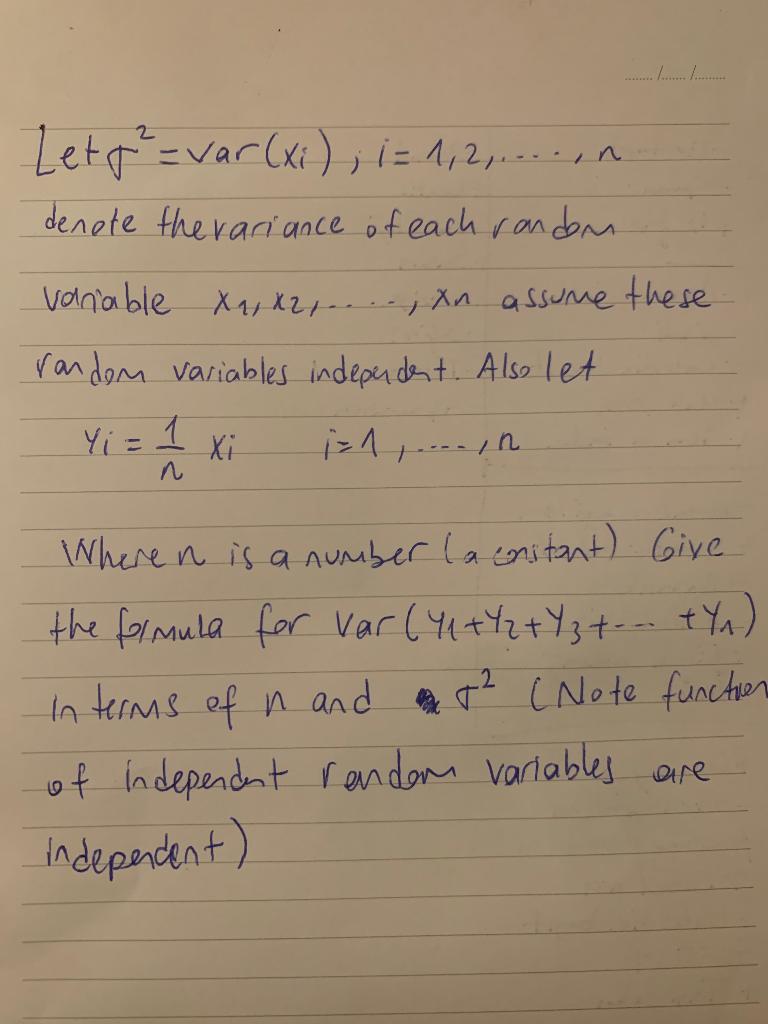 ...... /...... /.........
Let σ² = var(xi) ; i = 1,2,....,n
denote the variance of each random
variable x1, x2, ....., xn assume these
random variables independent. Also let
Yi = 1/n xi i=1,....,n
Where n is a number (a constant) Give
the formula for Var(Y1+Y2+Y3+--- +Yn)
in terms of n and σ² (Note function
of independent random variables are
independent)